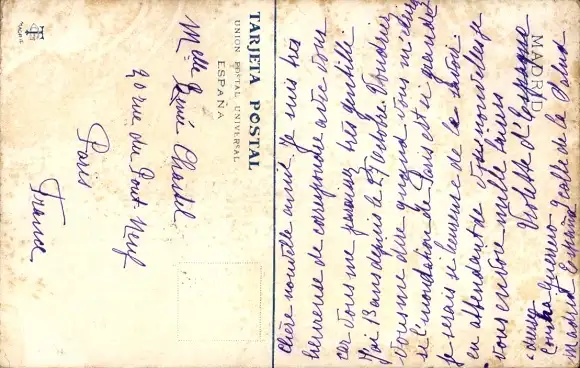 TARJETA POSTAL
UNION POSTAL UNIVERSAL
ESPAÑA
Melle Renée Chastel
20 rue du Pont Neuf
Paris
France
MADRID
Chère nouvelle amie. Je suis très
heureuse de correspondre avec vous
car vous me paraissez très gentille.
J'ai 13 ans depuis le 27 octobre. Voudriez
vous me dire quand vous m'écrirez
si l'inondation de Paris est si grande
je serais si heureuse de le savoir.
en attendant de vos nouvelles je
vous envoie mille baisers
Violette d'Espagne
Guerrero
calle de la
Madrid España